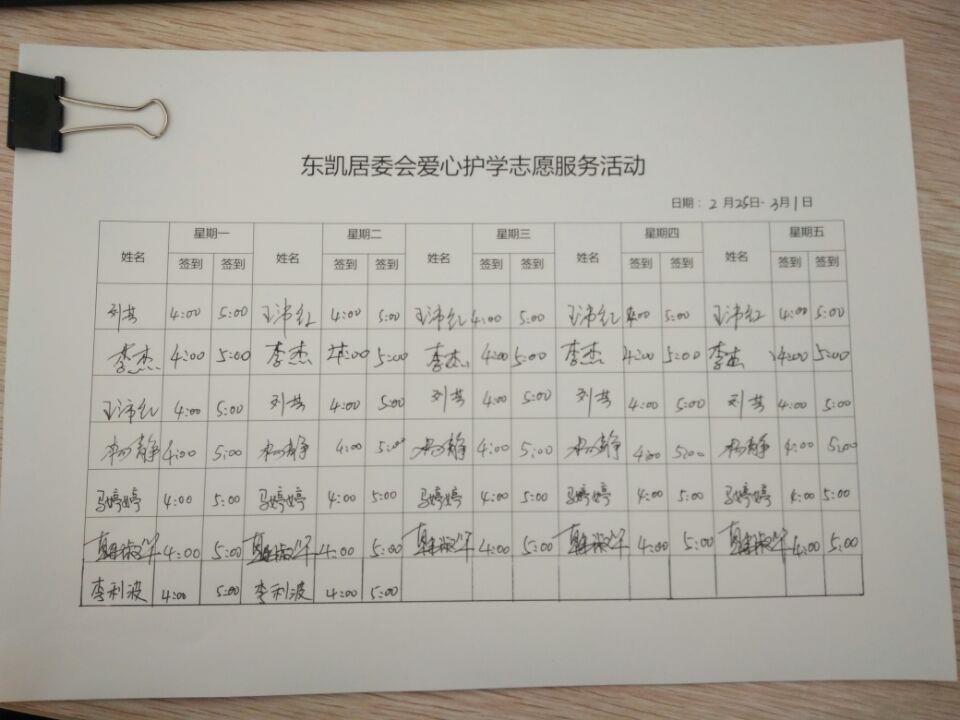 东凯居委会爱心护学志愿服务活动
日期：2月25日-3月1日
姓名 星期一 姓名 星期二 姓名 星期三 姓名 星期四 姓名 星期五
签到 签到 签到 签到 签到 签到 签到 签到 签到 签到
刘芸 4:00 5:00 王沛红 4:00 5:00 王沛红 4:00 5:00 王沛红 4:00 5:00 王沛红 4:00 5:00
李杰 4:00 5:00 李杰 4:00 5:00 李杰 4:00 5:00 李杰 4:00 5:00 李杰 4:00 5:00
王沛红 4:00 5:00 刘芸 4:00 5:00 刘芸 4:00 5:00 刘芸 4:00 5:00 刘芸 4:00 5:00
杨静 4:00 5:00 杨静 4:00 5:00 杨静 4:00 5:00 杨静 4:00 5:00 杨静 4:00 5:00
马婷婷 4:00 5:00 马婷婷 4:00 5:00 马婷婷 4:00 5:00 马婷婷 4:00 5:00 马婷婷 4:00 5:00
4:00 5:00 4:00 5:00 4:00 5:00 4:00 5:00 4:00 5:00
李利波 4:00 5:00 李利波 4:00 5:00